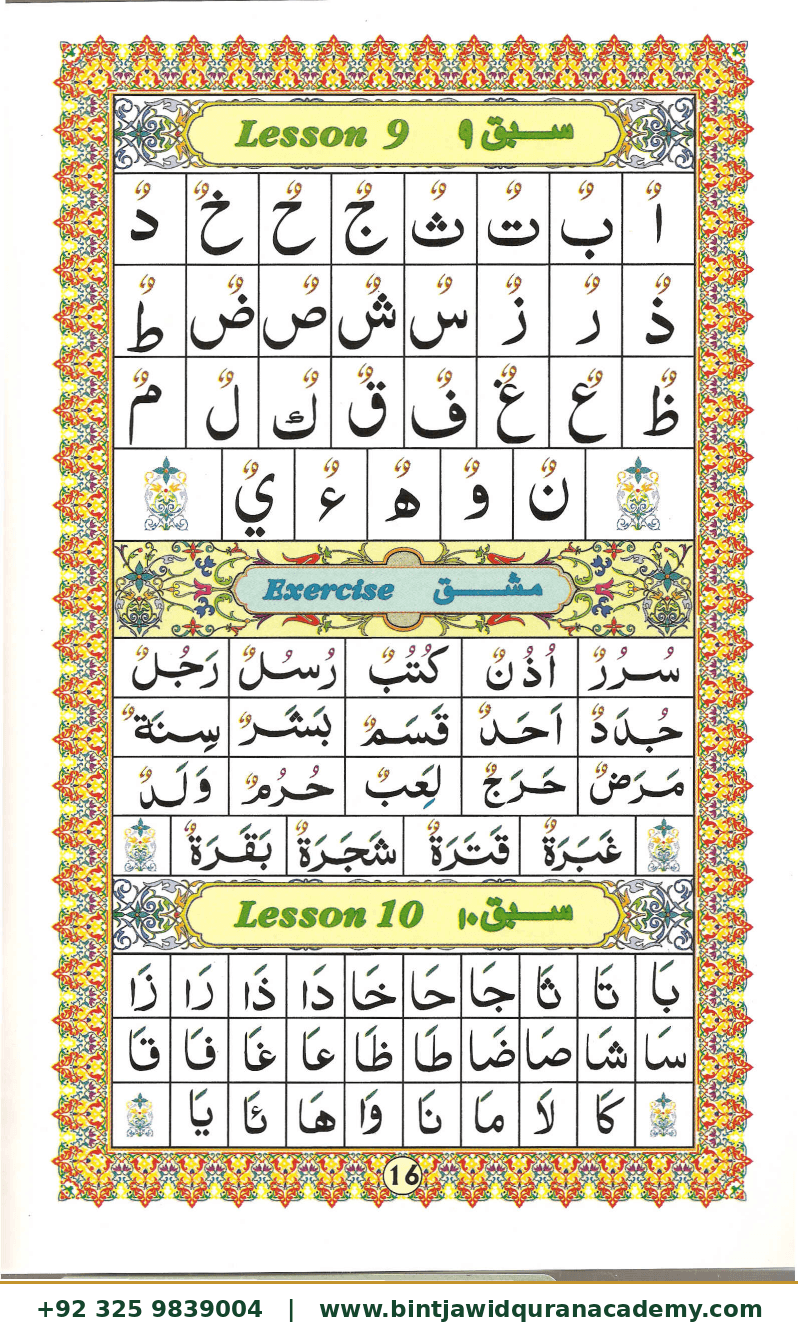 Lesson 9 سبق ۹
اٌ بٌ تٌ ثٌ جٌ حٌ خٌ دٌ
ذٌ رٌ زٌ سٌ شٌ صٌ ضٌ طٌ
ظٌ عٌ غٌ فٌ قٌ كٌ لٌ مٌ
نٌ وٌ هٌ ءٌ يٌ
Exercise مشق
سُرُرٌ اُذُنٌ كُتُبٌ رُسُلٌ رَجُلٌ
جُدَدٌ اَحَدٌ قَسَمٌ بَشَرٌ سِنَةٌ
مَرَضٌ حَرَجٌ لَعِبٌ حُرُمٌ وَلَدٌ
غَبَرَةٌ قَتَرَةٌ شَجَرَةٌ بَقَرَةٌ
Lesson 10 سبق ۱۰
بَا تَا ثَا جَا حَا خَا دَا ذَا رَا زَا
سَا شَا صَا ضَا طَا ظَا عَا غَا فَا قَا
كَا لَا مَا نَا وَا هَا ئَا يَا
16
+92 325 9839004 | www.bintjawidquranacademy.com